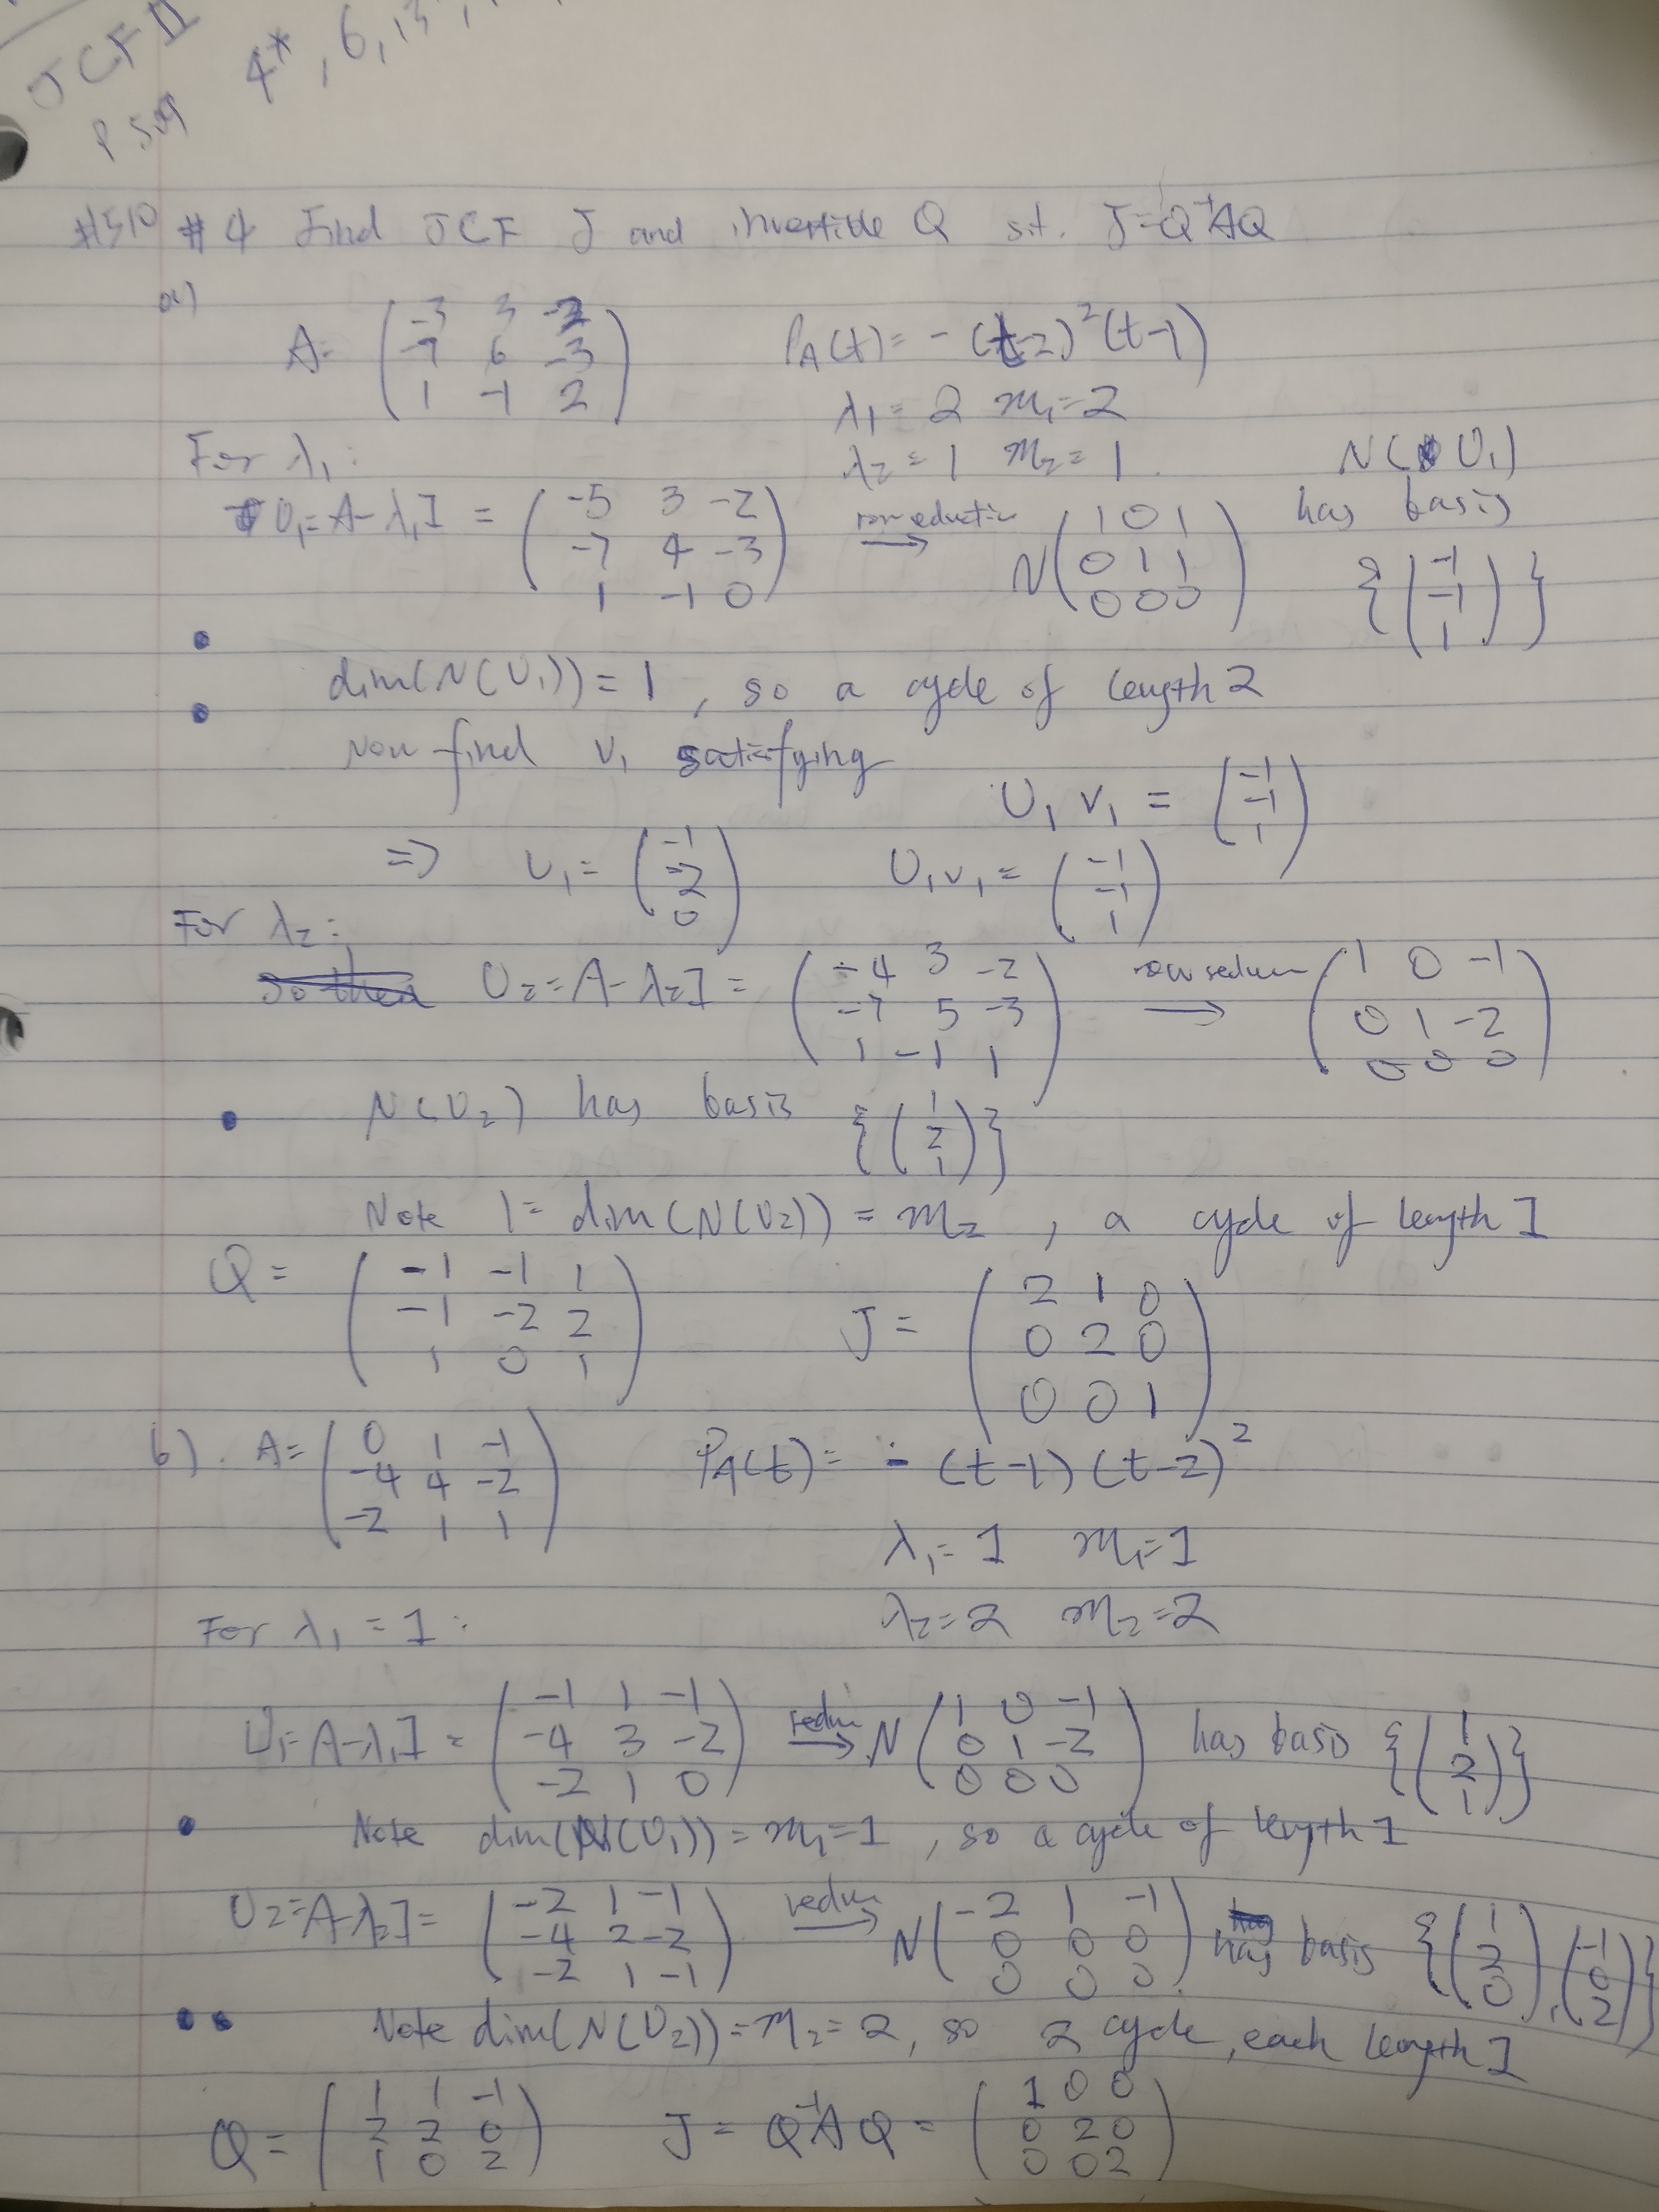 JCF II
P 509 4*, 6, 13,
#510 #4 Find JCF J and invertible Q s.t. J=Q⁻¹AQ
a)
A= (-3 3 -2
-7 6 -3
1 -1 2)
P_A(t)= -(t-2)²(t-1)
λ₁= 2 m₁=2
λ₂=1 m₂=1.
For λ₁:
U₁=A-λ₁I = (-5 3 -2
-7 4 -3
1 -1 0)
row reduction →
N(1 0 1
0 1 1
0 0 0)
N(U₁)
has basis
{(-1
-1
1)}
dim(N(U₁))=1, so a cycle of length 2
Now find v₁ satisfying
U₁v₁ = (-1
-1
1)
⇒ v₁= (-1
-2
0)
U₁v₁= (-1
-1
1)
For λ₂:
U₂=A-λ₂I= (-4 3 -2
-7 5 -3
1 -1 1)
→ (1 0 -1
0 1 -2
0 0 0)
N(U₂) has basis {(1
2
1)}
Note 1=dim(N(U₂))=m₂, a cycle of length 1
Q= (-1 -1 1
-1 -2 2
1 0 1)
J= (2 1 0
0 2 0
0 0 1)
b). A= (0 1 -1
-4 4 -2
-2 1 1)
P_A(t)= -(t-1)(t-2)²
λ₁=1 m₁=1
λ₂=2 m₂=2
For λ₁=1:
U₁=A-λ₁I= (-1 1 -1
-4 3 -2
-2 1 0)
→ N(1 0 -1
0 1 -2
0 0 0)
has basis {(1
2
1)}
Note dim(N(U₁))=m₁=1, so a cycle of length 1
U₂=A-λ₂I= (-2 1 -1
-4 2 -2
-2 1 -1)
→ N(-2 1 -1
0 0 0
0 0 0)
has basis {(1
2
0), (-1
0
2)}
Note dim(N(U₂))=m₂=2, so 2 cycle, each length 1
Q= (1 1 -1
2 2 0
1 0 2)
J=Q⁻¹AQ= (1 0 0
0 2 0
0 0 2)